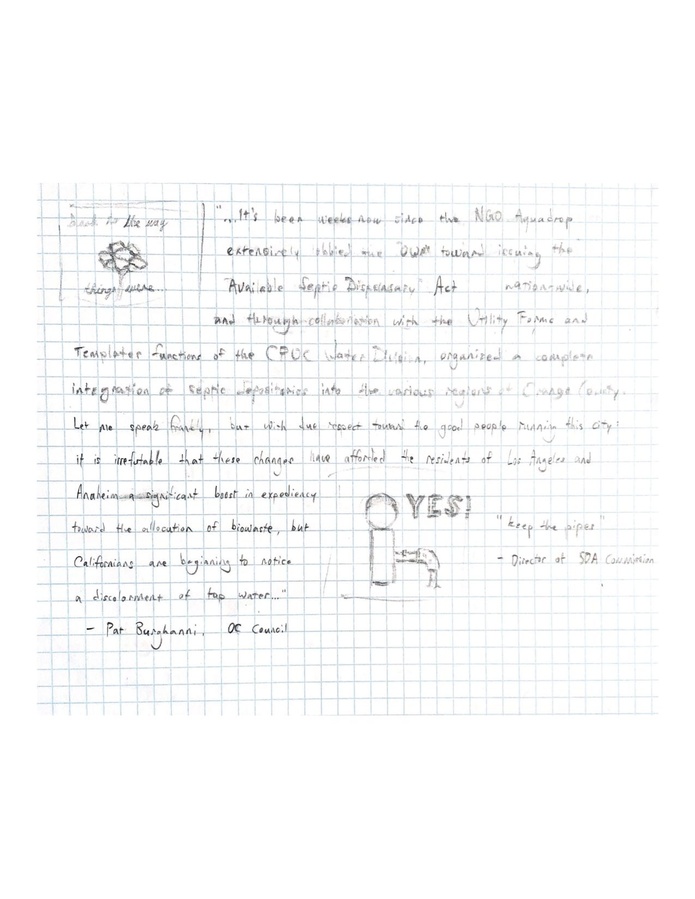 back to the way
things were...
"...It's been weeks now since the NGO Aquadrop
extensively the "DWR" toward issuing the
"Available Septic Dispensary" Act nationwide,
and through collaboration with the Utility Forms and
Templates functions of the CPUC Water Division, organized a complete
integration of septic depositories into the various regions of Orange County.
Let me speak frankly, but with due respect toward the good people running this city:
it is irrefutable that these changes have afforded the residents of Los Angeles and
Anaheim a significant boost in expediency
toward the allocution of biowaste, but
Californians are beginning to notice
a discolorment of tap water..."
- Pat Burghanni, OC Council
YES!
"keep the pipes"
- Director of SDA Commission